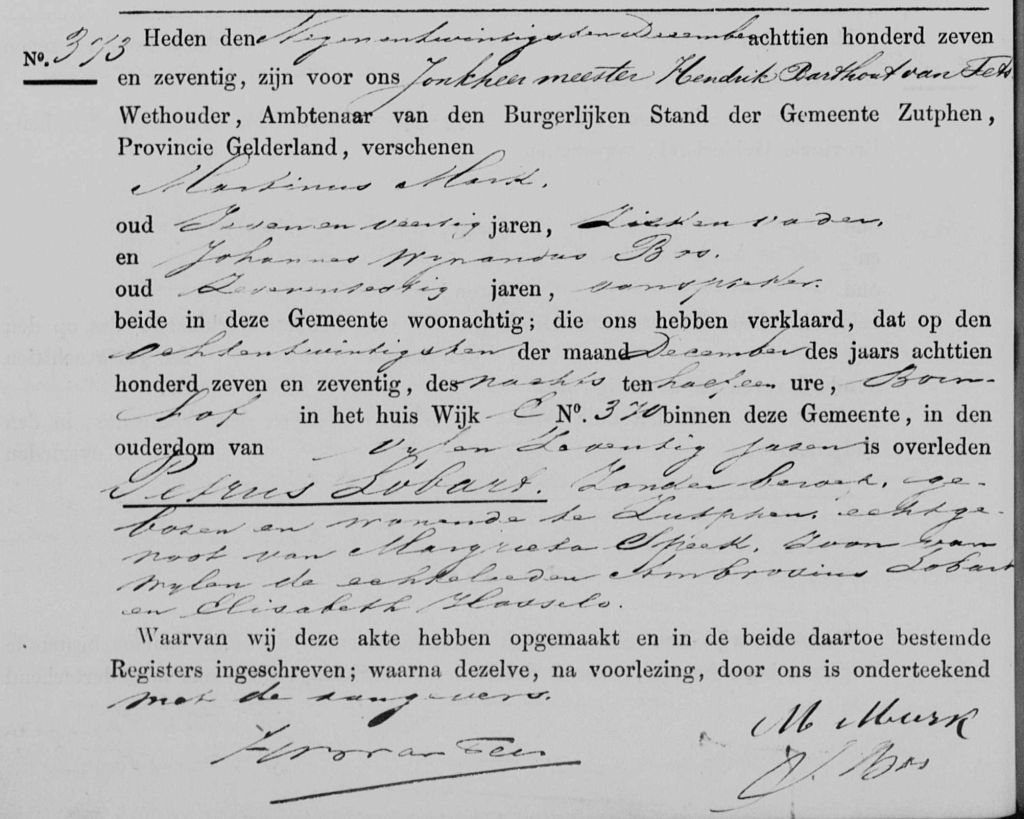 No. 373 Heden den Negenentwintigsten December achttien honderd zeven
en zeventig, zijn voor ons Jonkheer meester Hendrik Barthout van
Wethouder, Ambtenaar van den Burgerlijken Stand der Gemeente Zutphen,
Provincie Gelderland, verschenen
Martinus
oud Zevenenveertig jaren, Ziekenvader,
en Johannes Wynandus Bos.
oud jaren, aanspreker.
beide in deze Gemeente woonachtig; die ons hebben verklaard, dat op den
Achtentwintigsten der maand December des jaars achttien
honderd zeven en zeventig, des nachts ten half een ure,
hof in het huis Wijk E No. 370 binnen deze Gemeente, in den
ouderdom van Vyfenzeventig jaren is overleden
Petrus Lobart. Zonder beroep, ge-
boren en wonende te Zutphen, echtge-
noot van Margrieta Speek, Zoon van
wylen de echtelieden Ambrosius Lobart
en Elisabeth Hasselo.
Waarvan wij deze akte hebben opgemaakt en in de beide daartoe bestemde
Registers ingeschreven; waarna dezelve, na voorlezing, door ons is onderteekend
met de aangevers.
M
Bos